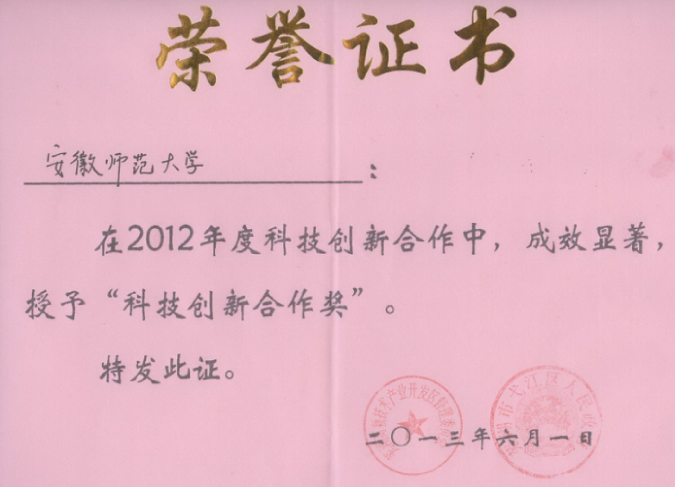 荣誉证书
安徽师范大学:
在2012年度科技创新合作中，成效显著，
授予“科技创新合作奖”。
特发此证。
二〇一三年六月一日